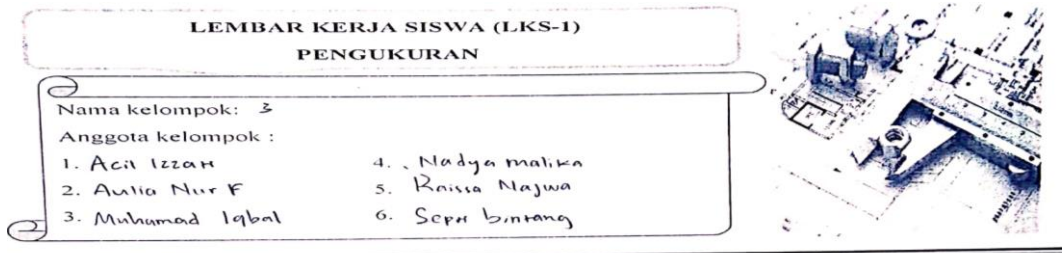 LEMBAR KERJA SISWA (LKS-1)
PENGUKURAN
Nama kelompok: 3
Anggota kelompok :
1. Acil Izzah
2. Aulia Nur F
3. Muhamad Iqbal
4. Nadya malika
5. Raissa Najwa
6. bintang